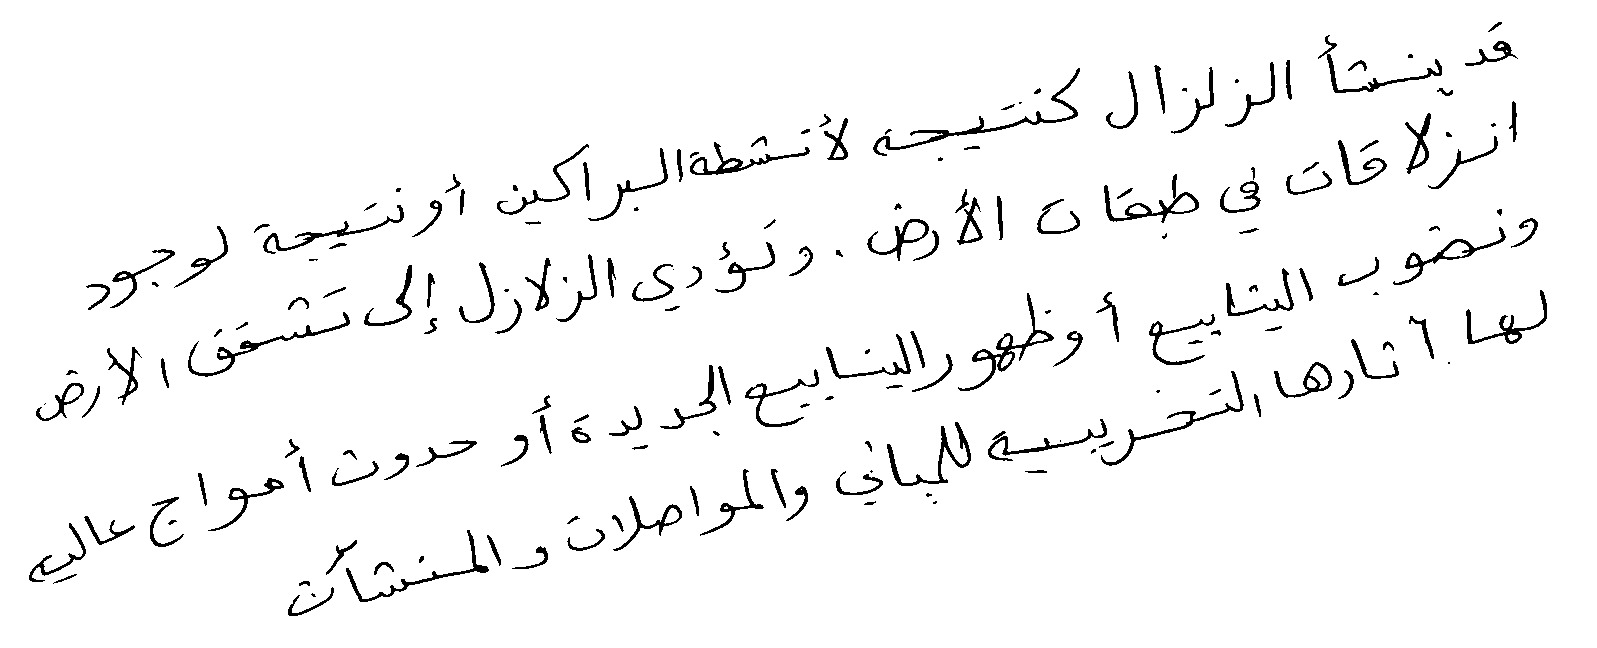 قد ينشأ الزلزال كنتيجة لأنشطة البراكين أو نتيجة لوجود
انزلاقات في طبقات الأرض . وتؤدي الزلازل إلى تشقق الأرض
ونضوب الينابيع أو ظهور الينابيع الجديدة أو حدوث أمواج عاليه
لها آثارها التخريبية للمباني والمواصلات والمنشآت